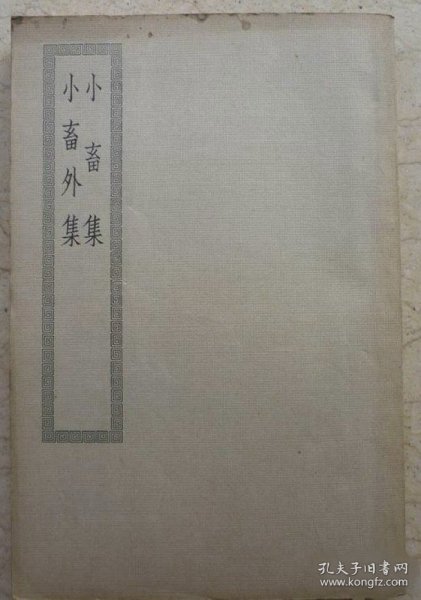 小畜集
小畜外集
孔夫子旧书网
www.kongfz.com